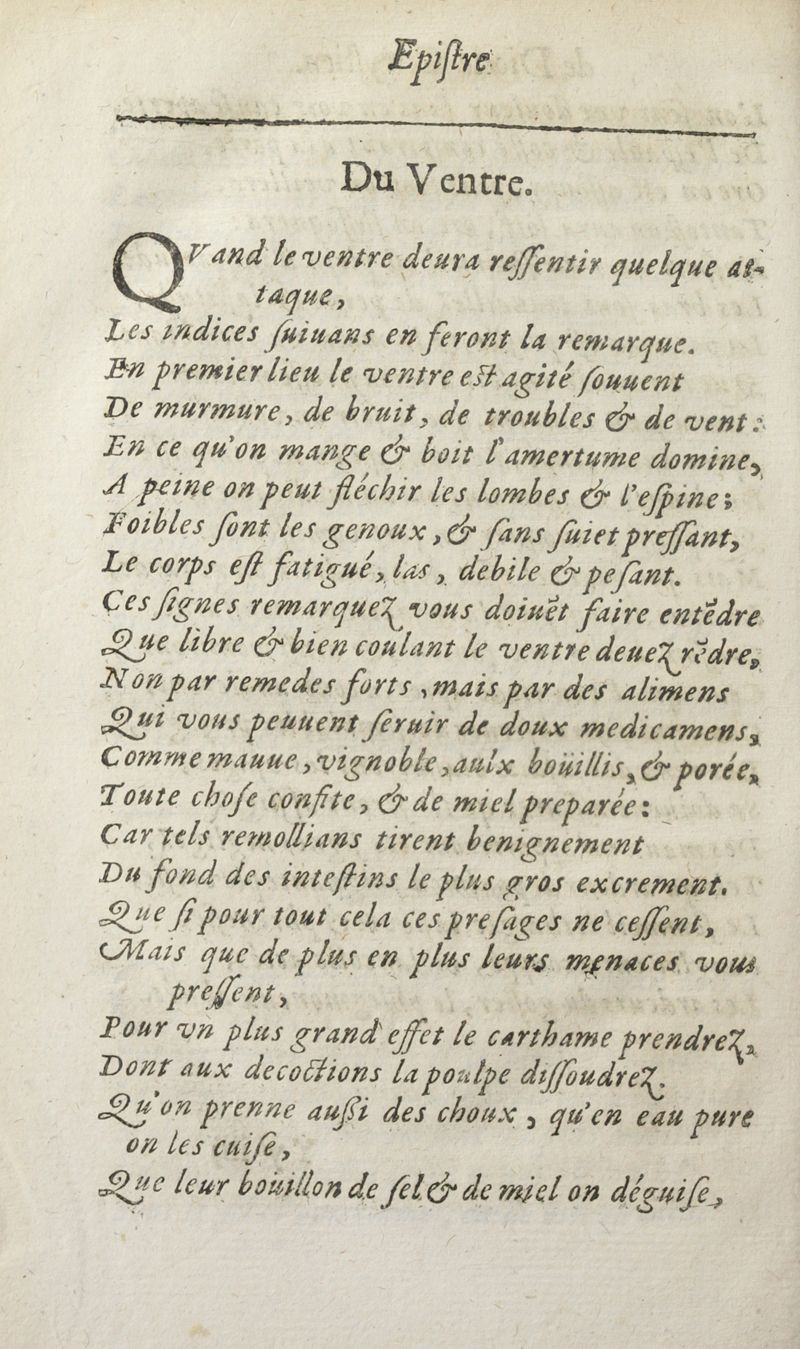 Epiſtre
Du Ventre.
QVand le ventre deura reſſentir quelque at-
taque,
Les indices ſuiuans en feront la remarque.
En premier lieu le ventre eſt agité ſouuent
De murmure, de bruit, de troubles & de vent:
En ce qu'on mange & boit l'amertume domine,
A peine on peut fléchir les lombes & l'eſpine;
Foibles ſont les genoux, & ſans ſuiet preſſant,
Le corps eſt fatigué, las, debile & peſant.
Ces ſignes remarquez vous doiuẽt faire entẽdre
Que libre & bien coulant le ventre deuez rẽdre,
Non par remedes forts, mais par des alimens
Qui vous peuuent ſeruir de doux medicamens,
Comme mauue, vignoble, aulx boüillis, & porée,
Toute choſe confite, & de miel preparée:
Car tels remollians tirent benignement
Du fond des inteſtins le plus gros excrement.
Que ſi pour tout cela ces preſages ne ceſſent,
Mais que de plus en plus leurs menaces vous
preſſent,
Pour vn plus grand effet le carthame prendrez,
Dont aux decoctions la poulpe diſſoudrez.
Qu'on prenne auſſi des choux, qu'en eau pure
on les cuiſe,
Que leur boüillon de ſel & de miel on déguiſe,